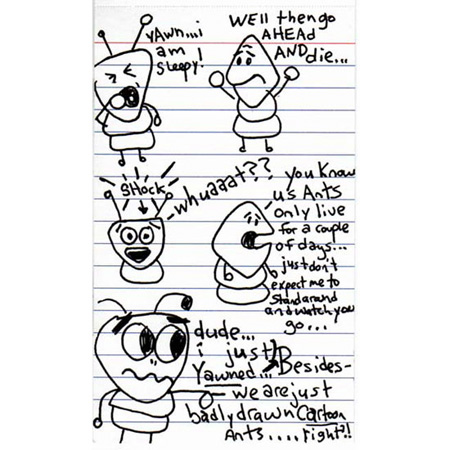 yAwn...i
am
sleepy!
WEll then go
AHEAd
ANDdie...
SHock
whuaaat??
you Know
us Ants
only live
for a couple
of days...
just don't
expect me to
Stand around
and watch you
go...
dude...
i just
Yawned...
Besides-
we are just
badly drawn Cartoon
Ants.... right?!